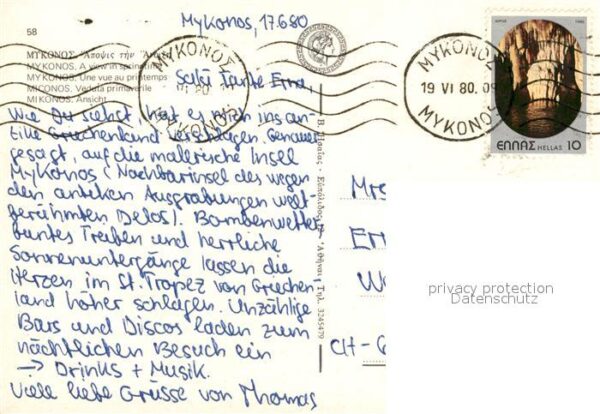 Mykonos, 17.6.80
58
ΜΥΚΟΝΟΣ
MYKONOS. A view in spring
MYKONOS. Une vue au printemps
MICONOS. Veduta primaverile
MIKONOS. Ansicht
ΜΥΚΟΝΟΣ
MYKONOS
ΜΥΚΟΝΟΣ
19 VI 80. 09
MYKONOS
ΕΛΛΑΣ HELLAS 10
Salü Tante Erna,
Wie Du siehst, hat es mich ins an-
tike Griechenland verschlagen. Genauer
gesagt, auf die malerische Insel
Mykonos (Nachbarinsel des wegen
den antiken Ausgrabungen welt-
berühmten Delos). Bombenwetter
buntes Treiben und herrliche
Sonnenuntergänge lassen die
Herzen im St. Tropez von Griechen-
land höher schlagen. Unzählige
Bars und Discos laden zum
nächtlichen Besuch ein
→ Drinks + Musik.
Viele liebe Grüsse von Thomas
Ἀθῆναι Τηλ. 3245479
Mrs
Er
W
CH-
privacy protection
Datenschutz